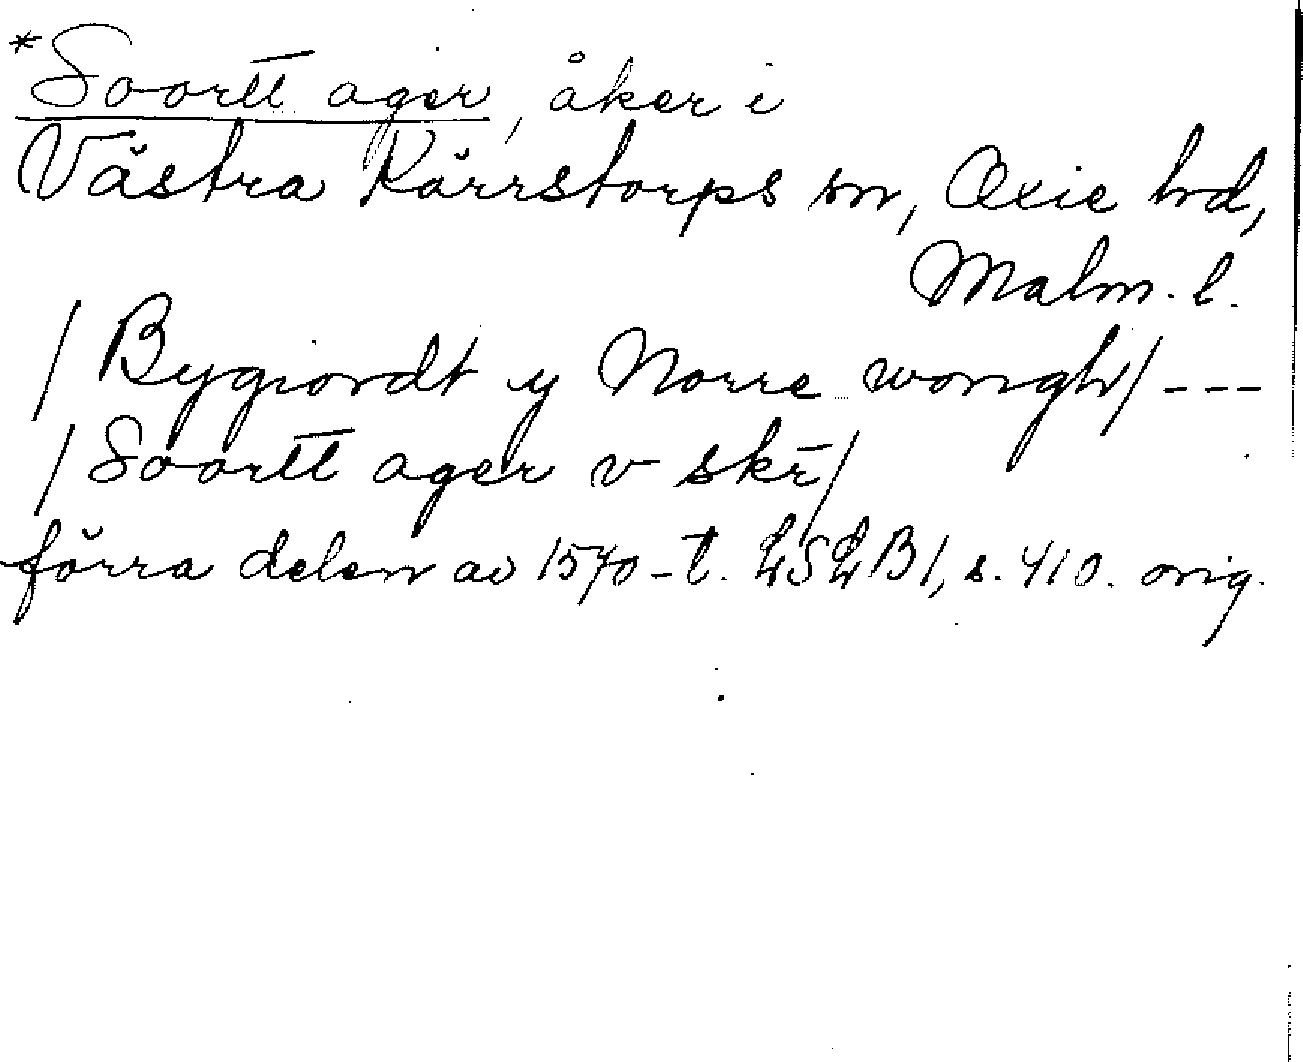 *Soortt ager, åker i
Västra Kärrstorps sn, Oxie hd,
Malm. l.
/Bygiordt y Norre wongh/ ---
/Soortt ager v skr̄/
förra delen av 1570-t. LSLB1, s. 410. orig.